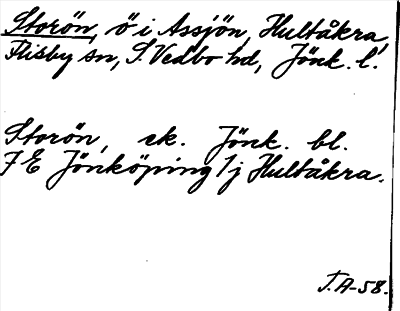 Storön, ö i Assjön, Hultåkra,
Flisby sn, S. Vedbo hd, Jönk. l.
Storön, ek. Jönk. bl.
7 E Jönköping 1j Hultåkra.
T.A-58.